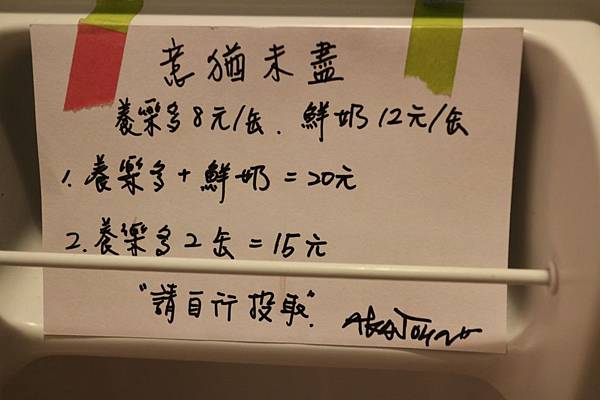 意猶未盡
養樂多8元/缶. 鮮奶12元/缶
1. 養樂多+鮮奶=20元
2. 養樂多2缶=15元
"請自行投取".